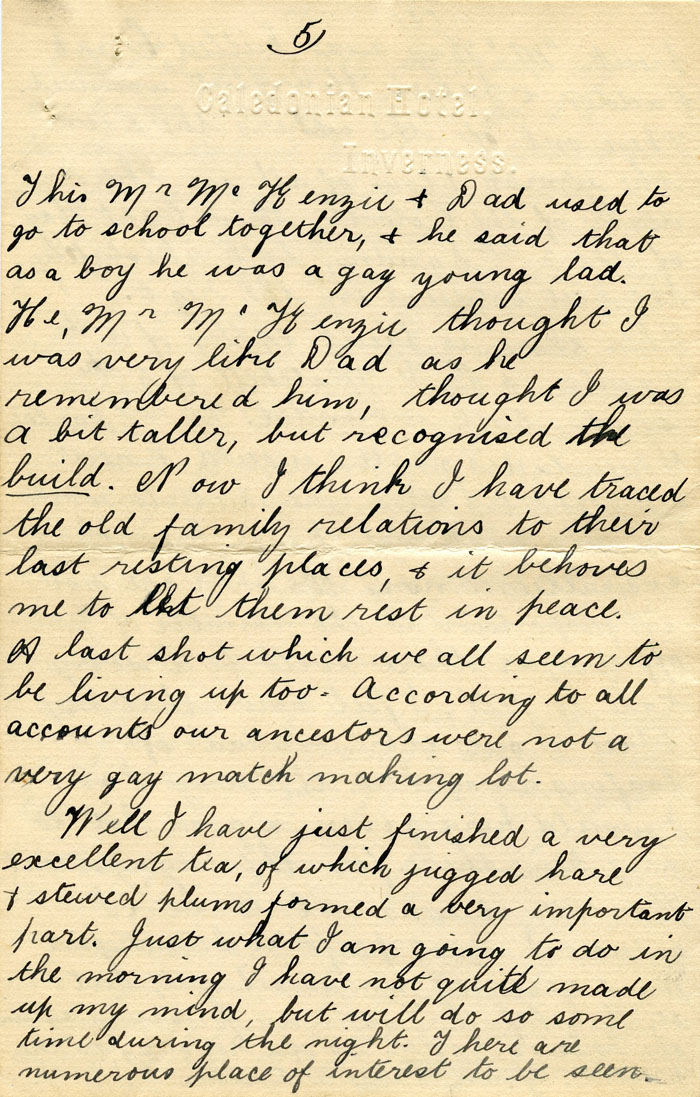 5
Caledonian Hotel,
Inverness.
This Mr Mc Kenzie & Dad used to
go to school together, & he said that
as a boy he was a gay young lad.
He, Mr Mc Kenzie thought I
was very like Dad as he
remembered him, thought I was
a bit taller, but recognised the
build. Now I think I have traced
the old family relations to their
last resting places, & it behoves
me to let them rest in peace.
A last shot which we all seem to
be living up too - According to all
accounts our ancestors were not a
very gay match making lot.
Well I have just finished a very
excellent tea, of which jugged hare
& stewed plums formed a very important
part. Just what I am going to do in
the morning I have not quite made
up my mind, but will do so some
time during the night. There are
numerous place of interest to be seen.